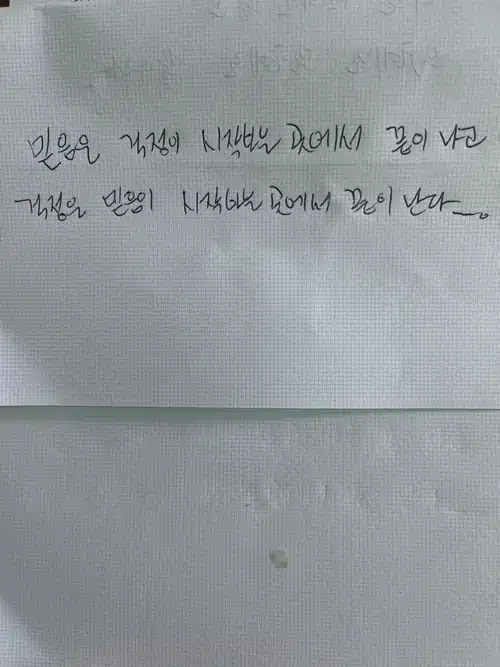 믿음은 걱정이 시작하는 곳에서 끝이 나고
걱정은 믿음이 시작하는 곳에서 끝이 난다_.